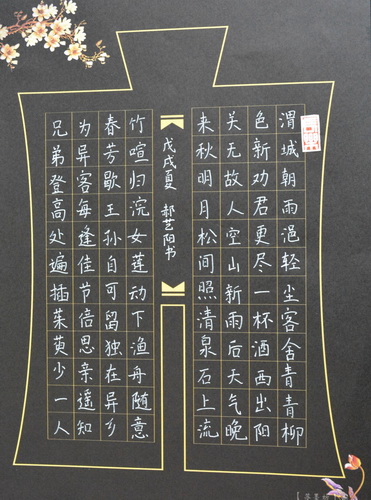 渭城朝雨浥轻尘客舍青青柳
色新劝君更尽一杯酒西出阳
关无故人空山新雨后天气晚
来秋明月松间照清泉石上流
戊戌夏 郝艺阳书
竹喧归浣女莲动下渔舟随意
春芳歇王孙自可留独在异乡
为异客每逢佳节倍思亲遥知
兄弟登高处遍插茱萸少一人